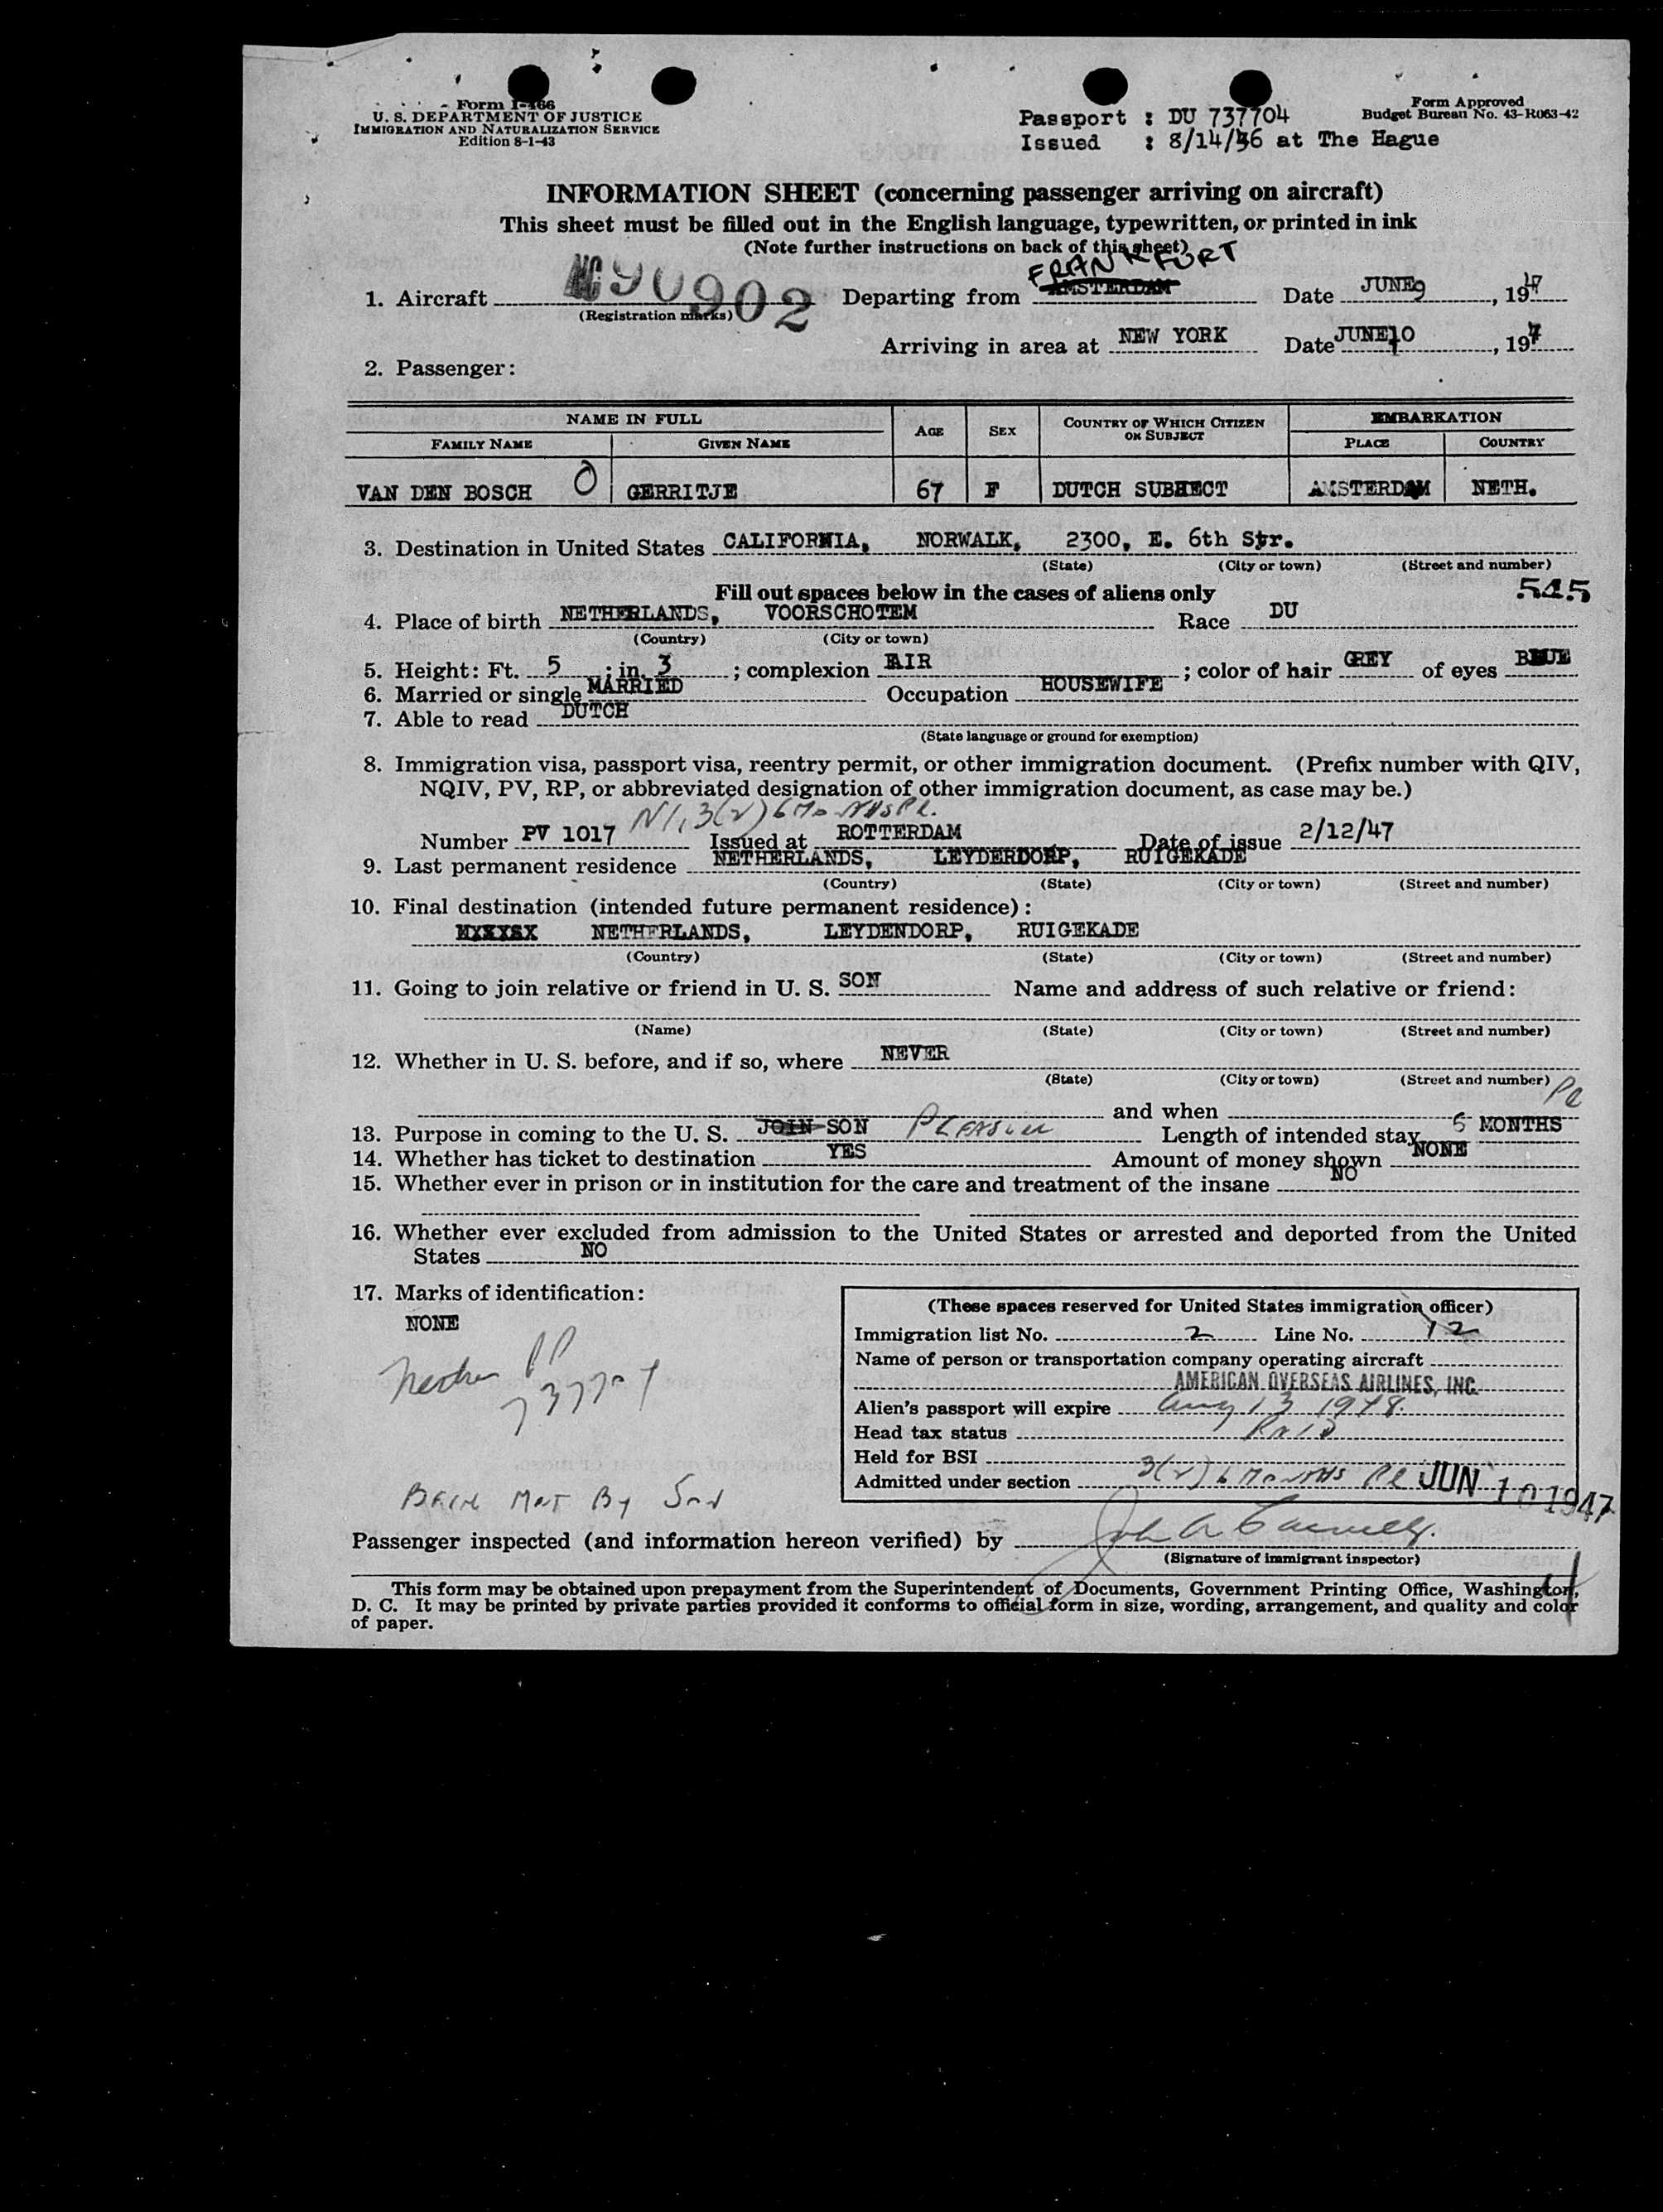 Form I-466
U. S. DEPARTMENT OF JUSTICE
IMMIGRATION AND NATURALIZATION SERVICE
Edition 8-1-43
Passport : DU 737704
Issued : 8/14/46 at The Hague
Form Approved
Budget Bureau No. 43-R063-42
INFORMATION SHEET (concerning passenger arriving on aircraft)
This sheet must be filled out in the English language, typewritten, or printed in ink
(Note further instructions on back of this sheet)
FRANKFURT
1. Aircraft NC90902 Departing from AMSTERDAM Date JUNE 9, 1947
(Registration marks)
Arriving in area at NEW YORK Date JUNE 10, 1947
2. Passenger:
NAME IN FULL AGE SEX COUNTRY OF WHICH CITIZEN OR SUBJECT EMBARKATION
FAMILY NAME GIVEN NAME PLACE COUNTRY
VAN DEN BOSCH GERRITJE 67 F DUTCH SUBHECT AMSTERDAM NETH.
3. Destination in United States CALIFORNIA, NORWALK, 2300, E. 6th Str.
(State) (City or town) (Street and number)
Fill out spaces below in the cases of aliens only 545
4. Place of birth NETHERLANDS, VOORSCHOTEM Race DU
(Country) (City or town)
5. Height: Ft. 5 ; in. 3 ; complexion FAIR ; color of hair GREY of eyes BLUE
6. Married or single MARRIED Occupation HOUSEWIFE
7. Able to read DUTCH
(State language or ground for exemption)
8. Immigration visa, passport visa, reentry permit, or other immigration document. (Prefix number with QIV,
NQIV, PV, RP, or abbreviated designation of other immigration document, as case may be.)
3(2) 6
Number PV 1017 Issued at ROTTERDAM Date of issue 2/12/47
9. Last permanent residence NETHERLANDS, LEYDERDORP, RUIGEKADE
(Country) (State) (City or town) (Street and number)
10. Final destination (intended future permanent residence):
NETHERLANDS, LEYDENDORP, RUIGEKADE
(Country) (State) (City or town) (Street and number)
11. Going to join relative or friend in U. S. SON Name and address of such relative or friend:
(Name) (State) (City or town) (Street and number)
12. Whether in U. S. before, and if so, where NEVER
(State) (City or town) (Street and number)
and when
13. Purpose in coming to the U. S. JOIN SON Pleasure Length of intended stay 6 MONTHS
14. Whether has ticket to destination YES Amount of money shown NONE
15. Whether ever in prison or in institution for the care and treatment of the insane NO
16. Whether ever excluded from admission to the United States or arrested and deported from the United
States NO
17. Marks of identification:
NONE
PP
737704
Being Met By Son
(These spaces reserved for United States immigration officer)
Immigration list No. 2 Line No. 12
Name of person or transportation company operating aircraft
AMERICAN OVERSEAS AIRLINES, INC.
Alien's passport will expire Aug 13 1948.
Head tax status Paid
Held for BSI
Admitted under section 3(2) 6 Months Pl JUN 10 1947
Passenger inspected (and information hereon verified) by
(Signature of immigrant inspector)
This form may be obtained upon prepayment from the Superintendent of Documents, Government Printing Office, Washington,
D. C. It may be printed by private parties provided it conforms to official form in size, wording, arrangement, and quality and color
of paper.